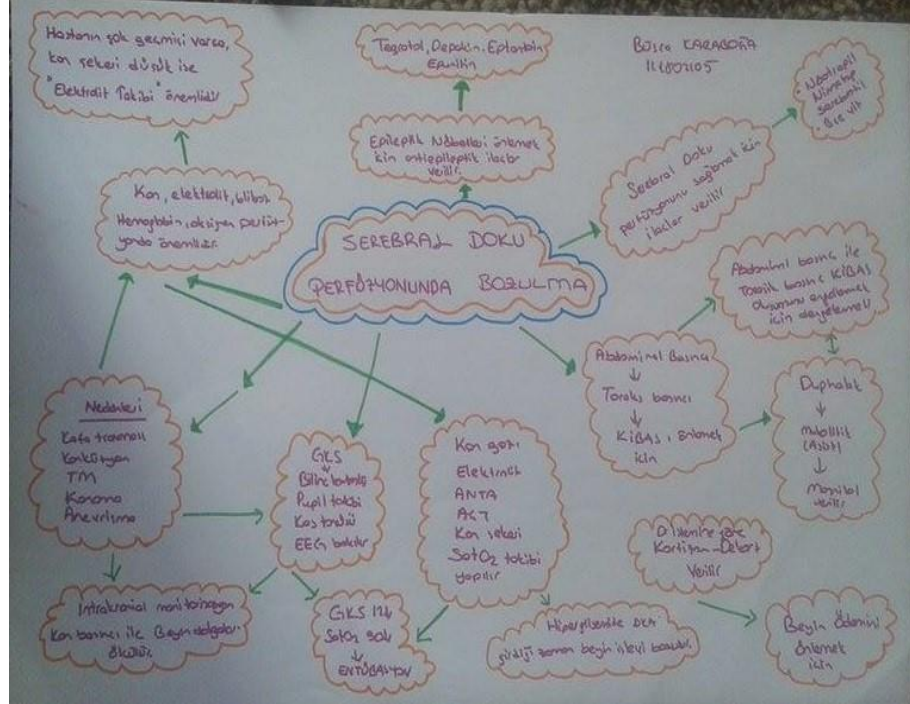 Hastanın şok geçmişi varsa,
kan şekeri düşük ise
"Elektrolit Takibi" önemlidir
Tegretol, Depakin, Eptantoin
Epanutin
Büşra KARABOĞA
111802105
Nootropil
Nimotop
B12 vit
Epileptik Nöbetleri önlemek
için antiepileptik ilaçlar
verilir.
Serebral Doku
perfüzyonunu sağlamak için
ilaçlar verilir
Kan, elektrolit, glikoz
Hemoglobin, oksijen perfüz-
yonda önemlidir.
SEREBRAL DOKU
PERFÜZYONUNDA BOZULMA
Abdominal basınç ile
Torasik basınç KİBAS
için
Abdominal Basınç
↓
Toraks basıncı
↓
KİBAS ı önlemek
için
Duphalac
↓
↓
Manitol
verilir
Nedenleri
Kafa travması
Konküzyon
TM
Kanama
Anevrizma
GKS
Bilinç kontrolü
Pupil takibi
Kas tonüsü
EEG bakılır
Kan gazı
Elektrolit
ANTA
AÇT
Kan şekeri
SatO2 takibi
yapılır
Kortizon-Dekort
Verilir
Beyin Ödemini
önlemek
için
İntrakranial monitorizasyon
Kan basıncı ile Beyin dalgaları
ölçülür.
GKS
↓
ENTÜBASYON
girdiği zaman beyin işlevi bozulur.